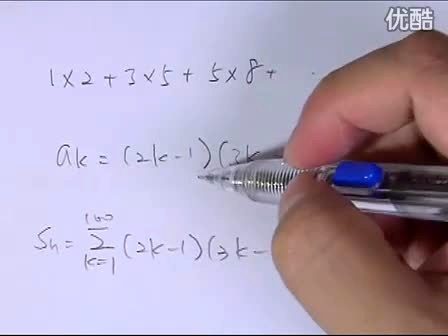 优酷
1×2+3×5+5×8+
ak=(2k-1)(3k
Sn=
100
Σ
k=1
(2k-1)(3k-